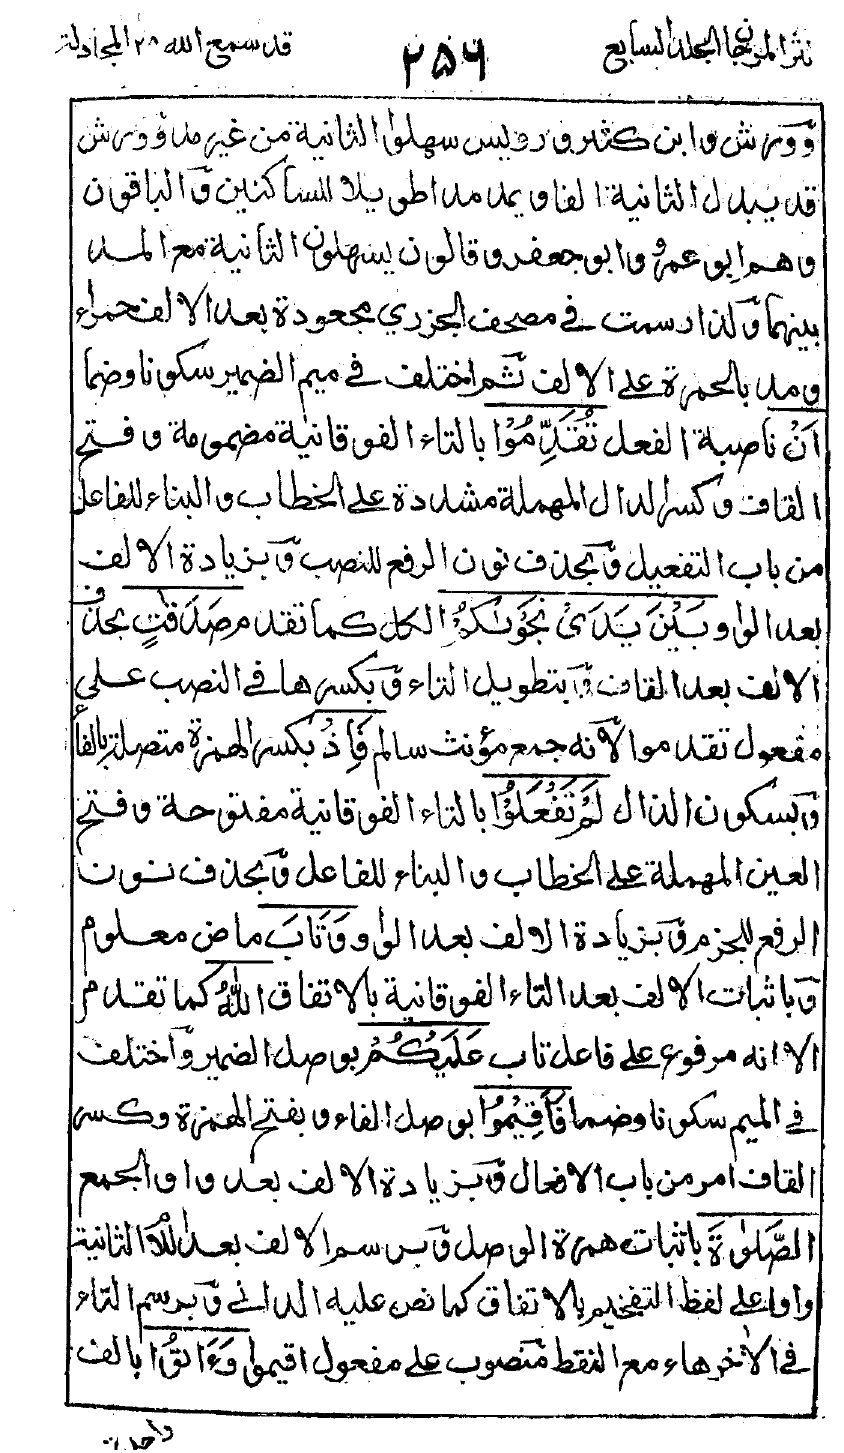 نثر المرجان المجلد السابع
٢٥٦
قد سمع الله ٢٨ المجادلة
وورش وابن كثير ورويس سهلوا الثانية من غير مد وورش
قد يبدل الثانية الفا ويمد مدا طويلا للساكنين والباقون
وهم ابو عمرو وابو جعفر وقالون يسهلون الثانية مع المد
بينهما وكذا رسمت في مصحف الجزري مجعودة بعد الالف حمراء
ومد بالحمرة على الالف ثم اختلف في ميم الضمير سكونا وضما
اَنْ ناصبة الفعل تُقَدِّمُوْا بالتاء الفوقانية مضمومة وفتح
القاف وكسر الدال المهملة مشددة على الخطاب والبناء للفاعل
من باب التفعيل وبحذف نون الرفع للنصب وبزيادة الالف
بعد الواو بَيْنَ يَدَىْ نَجْوٰىكُمْ الكل كما تقدم صَدَقٰتٍ بحذف
الالف بعد القاف وبتطويل التاء وبكسرها في النصب على
مفعول تقدموا لانه جمع مؤنث سالم فَاِذْ بكسر الهمزة متصلة بالفاء
وبسكون الذال لَمْ تَفْعَلُوْا بالتاء الفوقانية مفتوحة وفتح
العين المهملة على الخطاب والبناء للفاعل وبحذف نون
الرفع للجزم وبزيادة الالف بعد الواو وَتَابَ ماض معلوم
وباثبات الالف بعد التاء الفوقانية بالاتفاق اللّٰهُ كما تقدم
الا انه مرفوع على فاعل تاب عَلَيْكُمْ بوصل الضمير واختلف
في الميم سكونا وضما فَاَقِيْمُوا بوصل الفاء وبفتح الهمزة وكسر
القاف امر من باب الافعال وبزيادة الالف بعد واو الجمع
الصَّلٰوةَ باثبات همزة الوصل وبرسم الالف بعد اللام الثانية
واوا على لفظ التفخيم بالاتفاق كما نص عليه الداني وبرسم التاء
في الاخر هاء مع النقط منصوب على مفعول اقيموا وَءَاتُوا بالف
واحدة